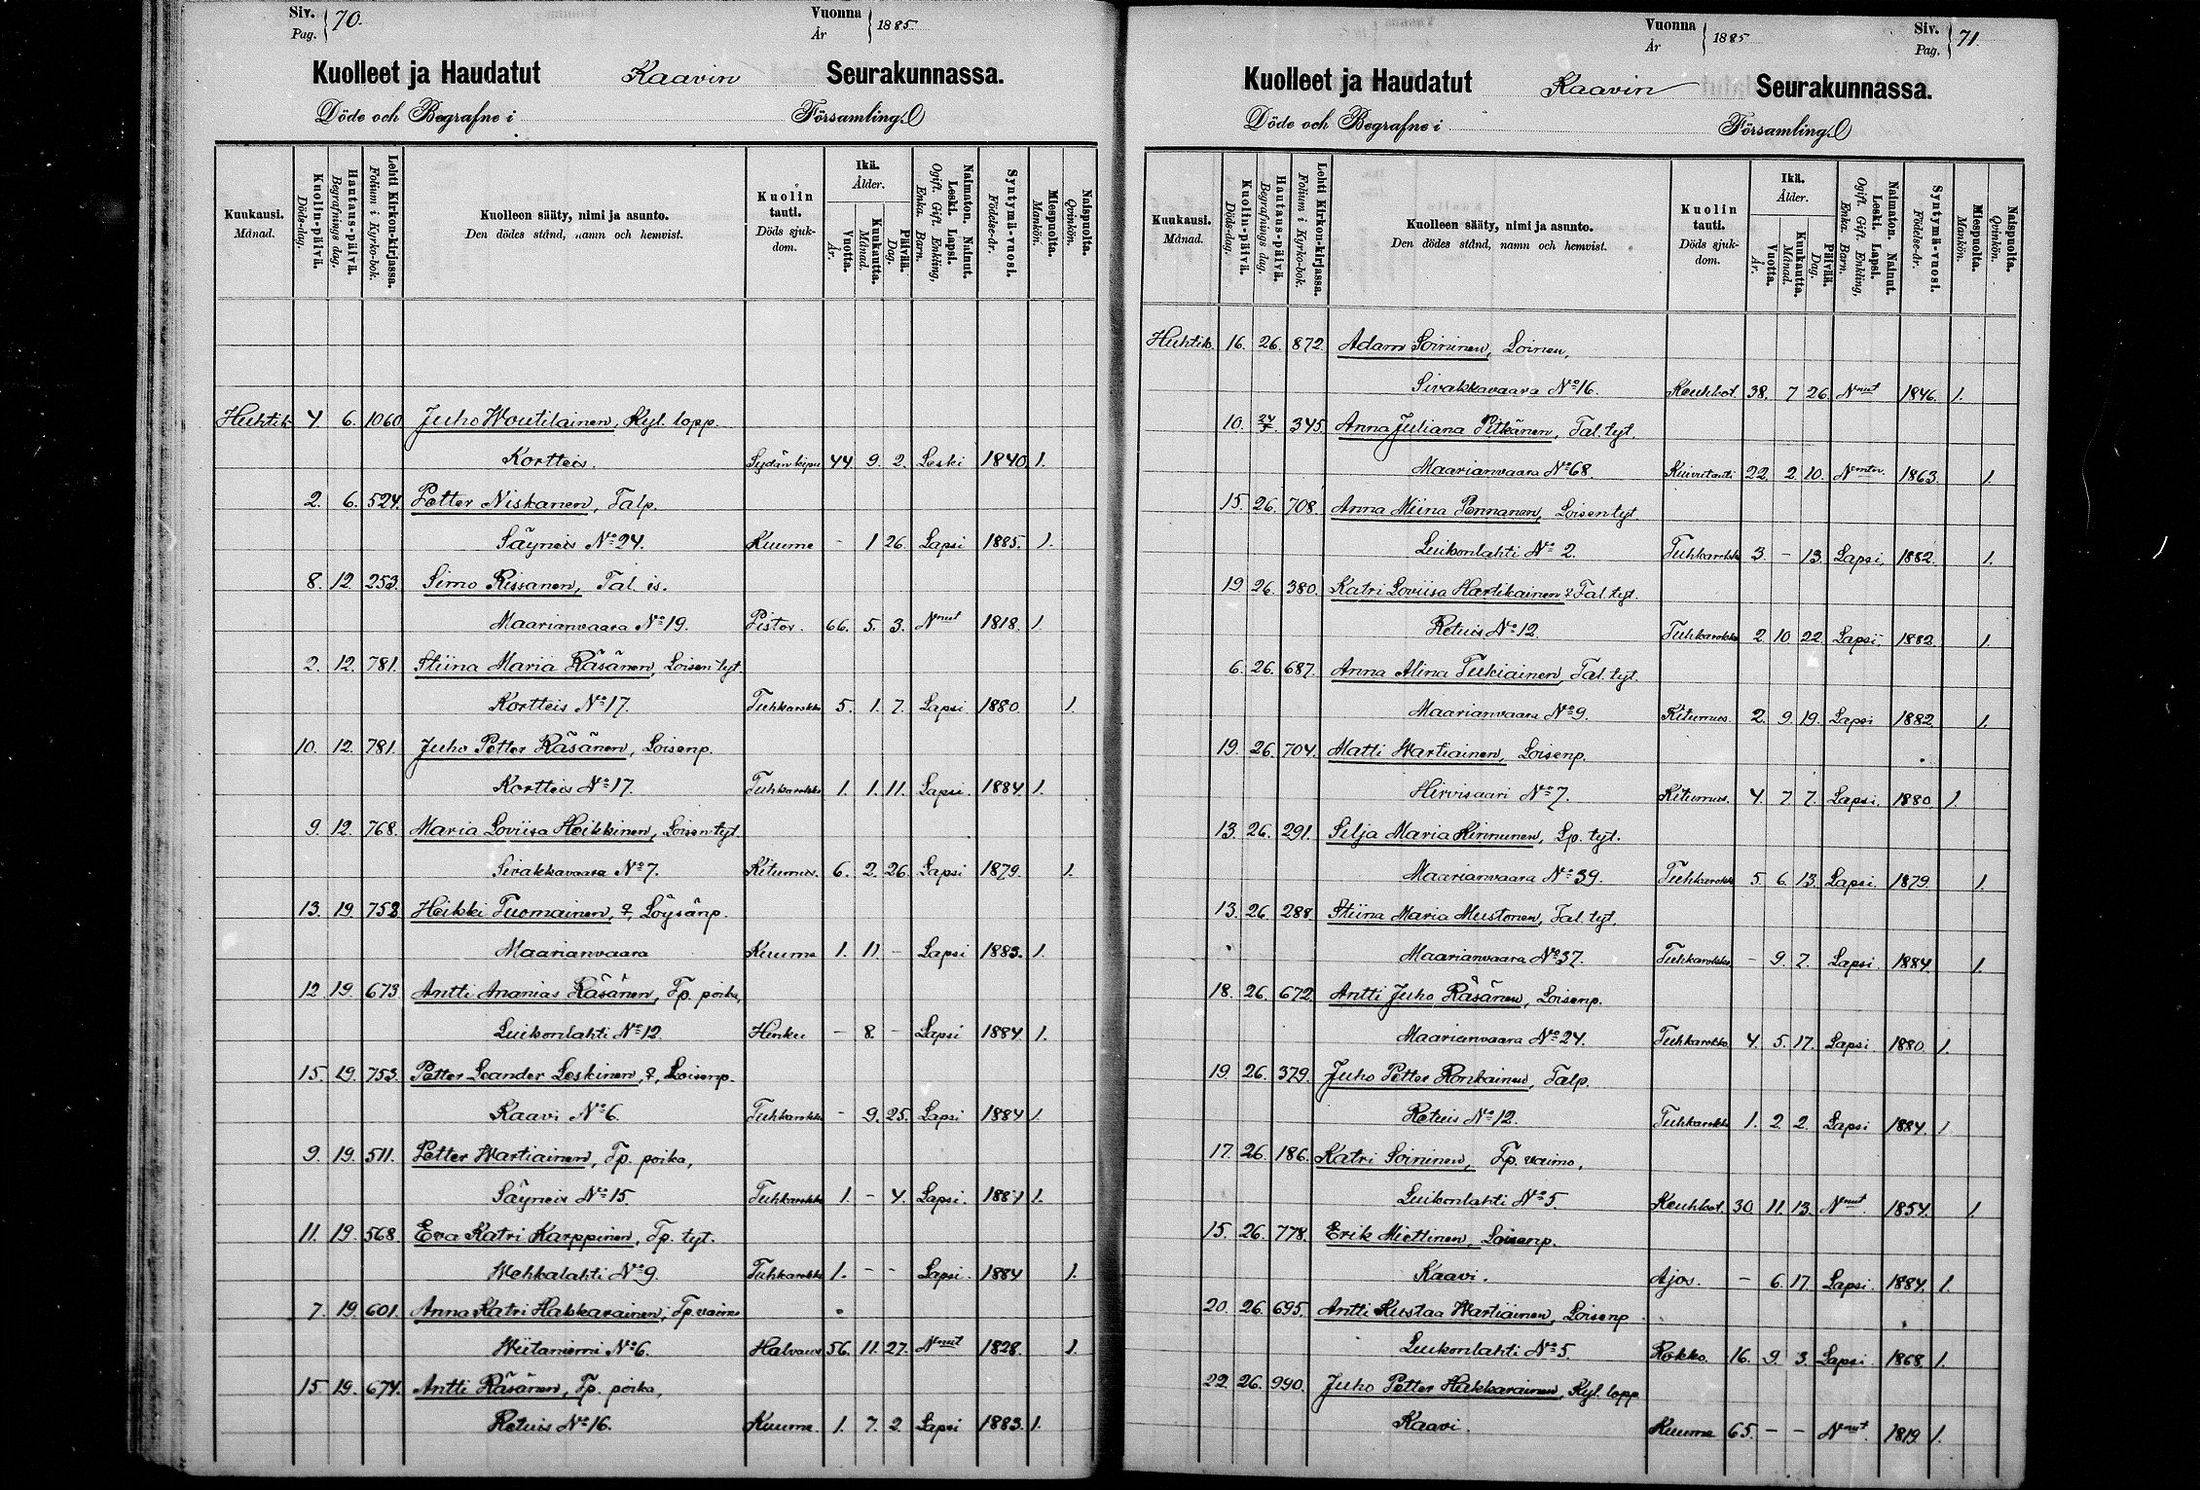 Siv. Pag. 70.
Vuonna År 1885.
Kuolleet ja Haudatut Kaavin Seurakunnassa.
Döde och Begrafne i Församling.
Kuukausi. Månad.
Kuolin-päivä. Döds-dag.
Hautaus-päivä. Begrafnings dag.
Lehti Kirkon-kirjassa. Folium i Kyrko-bok.
Kuolleen sääty, nimi ja asunto. Den dödes stånd, namn och hemvist.
Kuolin tauti. Döds sjukdom.
Ikä. Ålder.
Vuotta. År.
Kuukautta. Månad.
Päivää. Dag.
Naimaton. Nainut. Leski. Lapsi. Ogift. Gift. Enkling, Enka. Barn.
Syntymä-vuosi. Födelse-år.
Miespuolta. Mankön.
Naispuolta. Qvinkön.
Huhtik. 4 6. 1060 Juho Woutilainen, Kyl. lopp.
Kortteis. Sydänkipu 44. 9. 2. Leski 1840. 1.
2. 6. 524. Petter Niskanen, Talp.
Säyneis No 24. Kuume - 1 26. Lapsi 1885. 1.
8. 12. 253. Simo Rissanen, Tal. is.
Maarianvaara No 19. Pistos. 66. 5. 3. Nnut 1818. 1.
2. 12. 781. Stiina Maria Räsänen, Loisen tyt.
Kortteis No 17. Tuhkarokko 5. 1. 7. Lapsi 1880. 1.
10. 12. 781. Juho Petter Räsänen, Loisenp.
Kortteis No 17. Tuhkarokko 1. 1. 11. Lapsi. 1884. 1.
9. 12. 768. Maria Loviisa Heikkinen, Loisen tyt.
Sivakkavaara No 7. Kitumus. 6. 2. 26. Lapsi 1879. 1.
13. 19. 752 Heikki Tuomainen, Löysänp.
Maarianvaara Kuume 1. 11. - Lapsi 1883. 1.
12. 19. 673 Antti Ananias Räsänen, Tp. poika,
Luikonlahti No 12. Hinku - 8. - Lapsi 1884 1.
15. 19. 753. Petter Leander Leskinen, Loisenp.
Kaavi No 6. Tuhkarokko - 9. 25. Lapsi 1884 1.
9. 19. 511. Petter Wartiainen, Tp. poika,
Säyneis No 15. Tuhkarokko 1. - 4. Lapsi. 1884 1.
11. 19. 568. Eva Katri Karppinen, Tp. tyt.
Wehkalahti No 9. Tuhkarokko 1. - - Lapsi. 1884 1.
7. 19. 601. Anna Katri Hakkarainen, Tp. vaimo
Wiitaniemi No 6. Halvaus 56. 11. 27. Nnut 1828. 1.
15. 19. 674. Antti Räsänen, Tp. poika,
Retuis No 16. Kuume. 1. 7. 2. Lapsi 1883. 1.
Vuonna År 1885
Siv. Pag. 71.
Kuolleet ja Haudatut Kaavin Seurakunnassa.
Döde och Begrafne i Församling.
Kuukausi. Månad.
Kuolin-päivä. Döds-dag.
Hautaus-päivä. Begrafnings dag.
Lehti Kirkon-kirjassa. Folium i Kyrko-bok.
Kuolleen sääty, nimi ja asunto. Den dödes stånd, namn och hemvist.
Kuolin tauti. Döds sjukdom.
Ikä. Ålder.
Vuotta. År.
Kuukautta. Månad.
Päivää. Dag.
Naimaton. Nainut. Leski. Lapsi. Ogift. Gift. Enkling, Enka. Barn.
Syntymä-vuosi. Födelse-år.
Miespuolta. Mankön.
Naispuolta. Qvinkön.
Huhtik. 16. 26. 872. Adam Soininen, Loinen,
Sivakkavaara No 16. Keuhkot. 38. 7 26. Nnut 1846. 1.
10. 345. Anna Juliana Pitkänen, Tal. tyt.
Maarianvaara No 68. Kuivatauti 22. 2 10. 1863. 1.
15. 26. 708. Anna Miina Pennanen, Loisen tyt.
Luikonlahti No 2. Tuhkarokko 3 - 13. Lapsi, 1882. 1.
19 26. 380. Katri Loviisa Hartikainen Tal. tyt.
Retuis No 12. Tuhkarokko 2. 10 22. Lapsi 1882. 1.
6. 26. 687. Anna Alina Tukiainen, Tal. tyt.
Maarianvaara No 9. Kitumus. 2. 9. 19. Lapsi 1882. 1.
19. 26. 704. Matti Wartiainen, Loisenp.
Hirvisaari No 7. Kitumus. 4. 7. 7. Lapsi. 1880. 1.
13. 26. 291. Silja Maria Kinnunen, Lp. tyt.
Maarianvaara No 39. Tuhkarokko 5. 6. 13. Lapsi. 1879. 1.
13. 26 288. Stiina Maria Mustonen, Tal. tyt.
Maarianvaara No 37. Tuhkarokko - 9. 7. Lapsi. 1884. 1.
18. 26. 672. Antti Juho Räsänen, Loisenp.
Maarianvaara No 24. Tuhkarokko 4. 5. 17. Lapsi. 1880. 1.
19. 26. 379. Juho Petter Ronkainen, Talp.
Retuis No 12. Tuhkarokko 1. 2. 2. Lapsi 1884. 1
17. 26. 186. Katri Soininen, Tp. vaimo,
Luikonlahti No 5. Keuhkot. 30 11. 13. Nnut. 1854. 1.
15. 26. 778. Erik Miettinen, Loisenp.
Kaavi. Ajos. - 6. 17. Lapsi. 1884. 1.
20. 26. 695. Antti Kustaa Wartiainen, Loisenp
Luikonlahti No 5. Rokko. 16. 9. 3. Lapsi. 1868. 1.
22. 26. 990. Juho Petter Hakkarainen, Kyl. lopp
Kaavi. Kuume 65. - - Nnut. 1819 1.